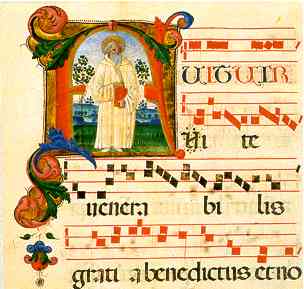 FUIT UIR
Ui te
uenera bi lis
grati a benedictus et no